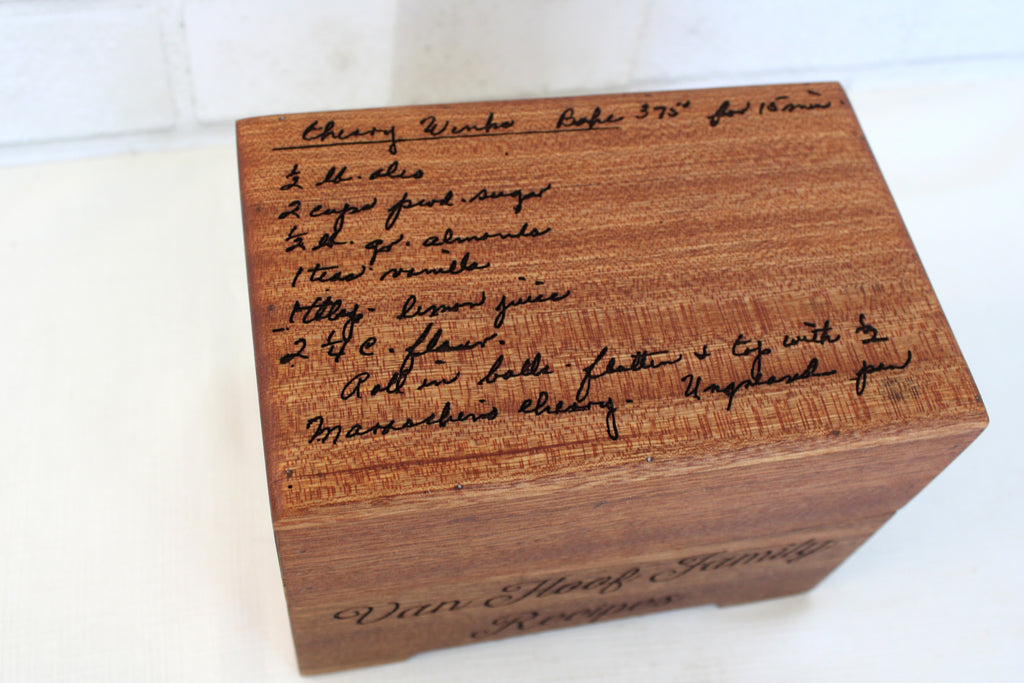 Cherry Winks Bake 375° for 15 min.
½ lb. oleo
2 cups pwd. sugar
½ lb. gr. almonds
1 teas vanilla
1 tbsp. lemon juice
2 ¼ c. flour.
Roll in balls. flatten & top with ½
Maraschino cherry. Ungreased pan
Van Hoof Family
Recipes